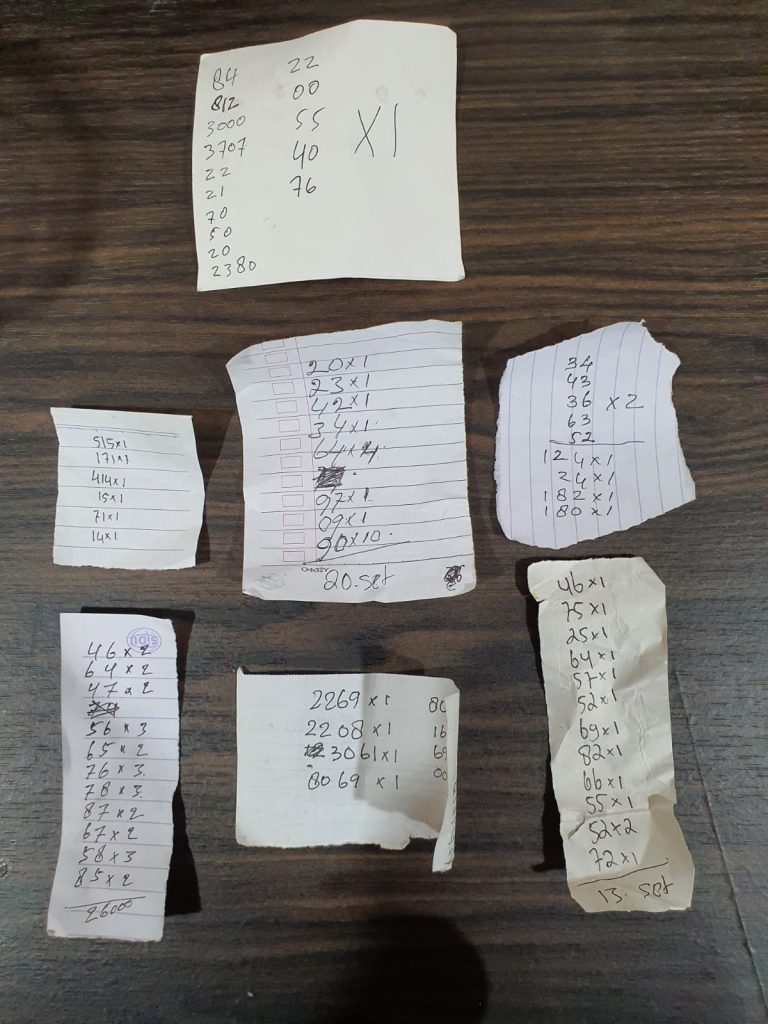 84
812
3000
3707
22
21
70
50
20
2380
22
00
55
40
76
X1
515x1
171x1
414x1
15x1
71x1
14x1
20x1
23x1
42x1
34x1
64x4
97x1
09x1
90x10
20.set
34
43
36 x2
63
52
124x1
24x1
182x1
180x1
46x2
64x2
47x2
56x3
65x2
76x3
78x3
87x2
67x2
58x3
85x2
26000
2269x1
2208x1
3061x1
8069x1
80
16
69
00
46x1
75x1
25x1
64x1
57x1
52x1
69x1
82x1
66x1
55x1
52x2
72x1
13. set